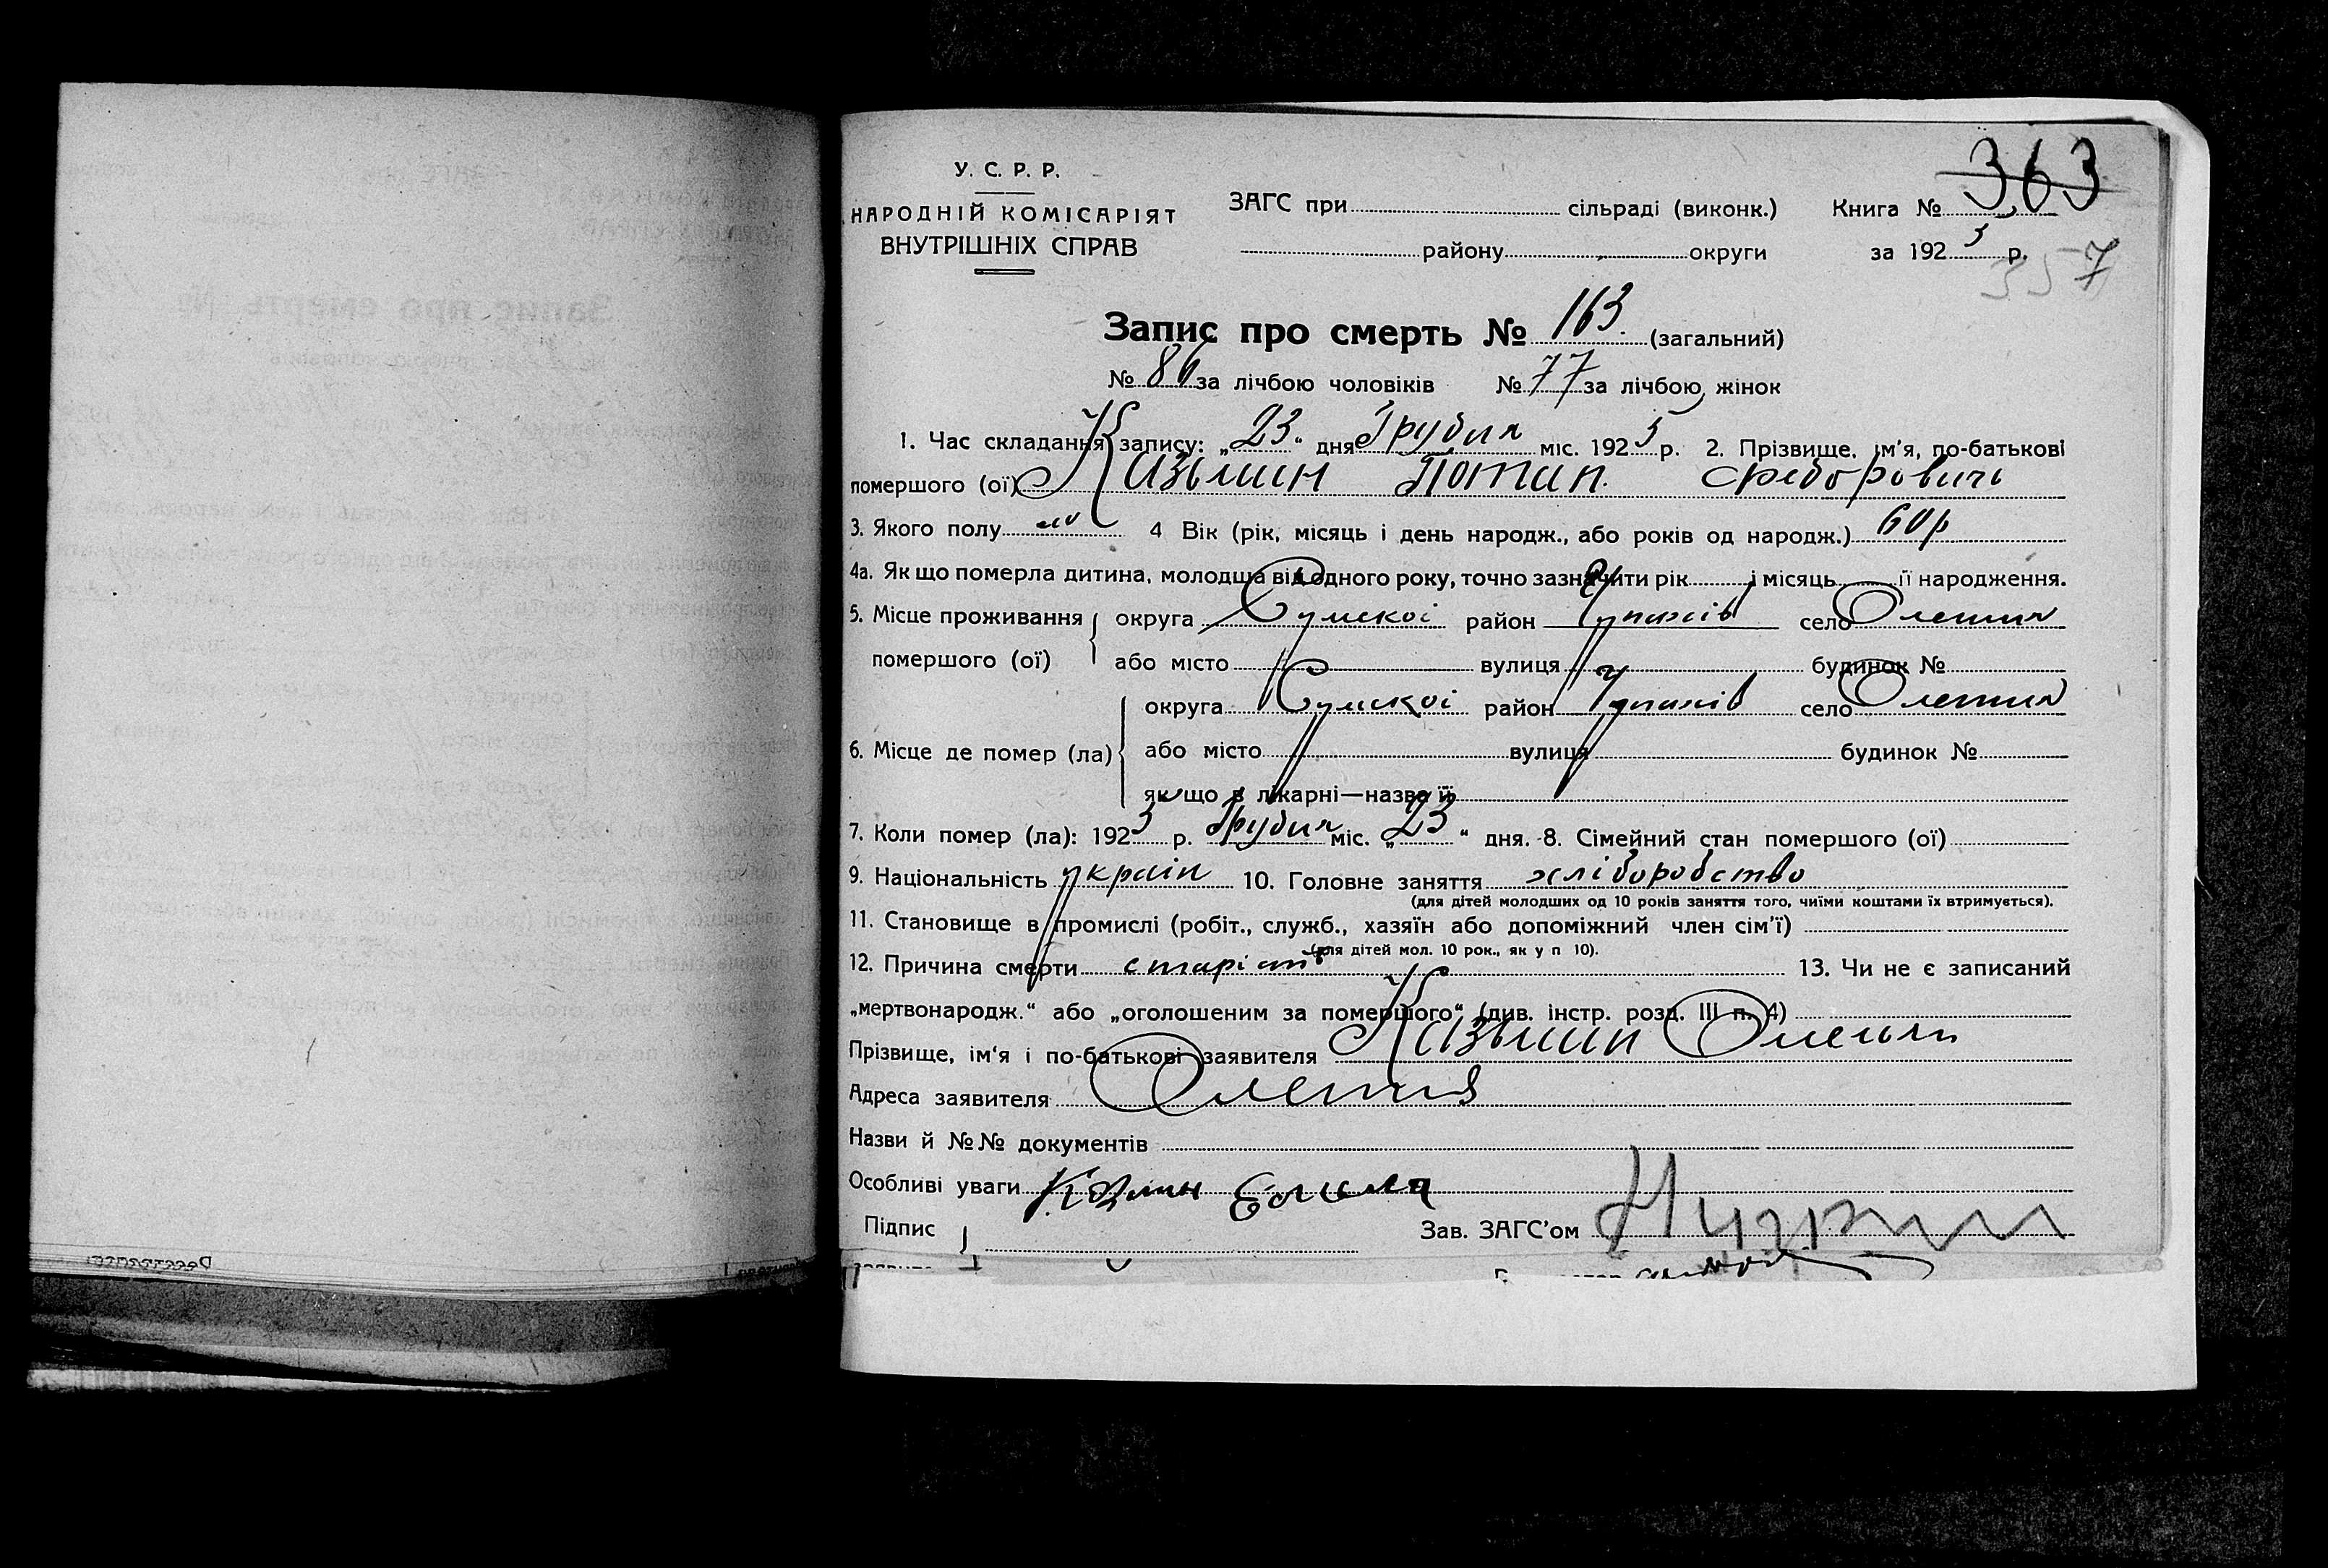 363
У. С. Р. Р.
НАРОДНІЙ КОМІСАРІЯТ
ВНУТРІШНІХ СПРАВ
ЗАГС при сільраді (виконк.) Книга №
району округи за 1925 р.
357
Запис про смерть № 163. (загальний)
№ 86 за лічбою чоловіків № 77 за лічбою жінок
1. Час складання запису: „23“ дня Грудня міс. 1925 р. 2. Прізвище, ім’я, по-батькові
помершого (ої) Казьмин Потап. Федоровичь
3. Якого полу 4 Вік (рік, місяць і день народж., або років од народж.) 60 р
4а. Якщо померла дитина, молодша від одного року, точно зазначити рік і місяць її народження.
5. Місце проживання округа Сумскої район село
помершого (ої) або місто вулиця будинок №
округа Сумскої район село
6. Місце де помер (ла) або місто вулиця будинок №
якщо в лікарні—назва її
7. Коли помер (ла): 1925 р. Грудня міс. „23“ дня. -8. Сімейний стан помершого (ої)
9. Національність україн 10. Головне заняття хліборобство
(для дітей молодших од 10 років заняття того, чиїми коштами їх втримується).
11. Становище в промислі (робіт., служб., хазяїн або допоміжний член сім’ї)
(для дітей мол. 10 рок., як у п 10).
12. Причина смерти старість 13. Чи не є записаний
„мертвонародж.“ або „оголошеним за помершого“ (див. інстр. розд. III п. 4)
Прізвище, ім‘я і по-батькові заявителя Казьмин
Адреса заявителя
Назви й №№ документів
Особливі уваги
Підпис Зав. ЗАГС’ом